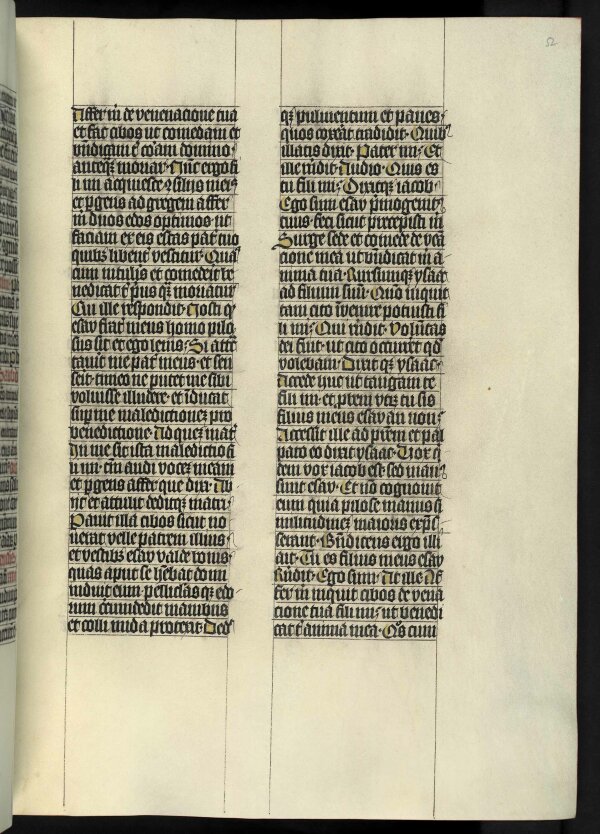 52
Affer m̄ de venenacione tua
et fac cibos ut comedam et
b̄n̄dicam t̄ corā domino
anteq̄ moriar · Nūc ergo fi
li mi acquiesce ɔsilijs meis
et p̄gens ad gregem affer
m̄ duos edos optimos · ut
faciam ex eis escas pat̄ tuo
quibꝫ libent̄ vescitur · Quas
cum intulis et comederit be
nedicat t̄ p̄us q̄ moriatur
Cui ille respondit · Nosti q̄
esay frat̄ meus homo pilo
sus sit et ego lenis · Si attre
tauīt me pat̄ meus · et sen
serit · timeo ne putet me sibi
voluisse illudere · et īducat
sup̄ me maledictionez pro
benedictione · Ad quez mat̄
In me sit ista maledictio fi
li mi · tm̄ audi vocez meam
et p̄gens affer que dixi · Abi
it et attulit deditqꝫ matri
Parauit illa cibos sicut no
uerat velle patrem illius
et vestibꝫ esay valde bonis
quas aput se hēbat domi
induit eum · pelliculas qꝫ edo
rum circumdedit manibus
et colli nuda protexit · Dedit
qꝫ pulmentum et panes
quos coxerat tradidit · Quibꝫ
illatis dixit · Pater mi · Et
ille rn̄dit · Audio · Quis es
tu fili mi · Dixitqꝫ iacob
Ego sum esay p̄mogenitꝰ
tuus · feci sicut p̄recepisti m̄
Surge sede et comede de vena
cione mea ut b̄n̄dicat m̄ a
nima tua · Rursumqꝫ ysaac
ad filium suū · Quō inquit
tam cito īvenire potuisti fi
li mi · Qui rn̄dit · Voluntas
dei fuit ut cito occurret qd̄
volebam · Dixit qꝫ ysaac
Accede huc ut tangam te
fili mi · et p̄bem utꝫ tu sis
filius meus esay an non
Accessit ille ad p̄rem et pal
pato eo dixit ysaac · Vox q̄
dem vox iacob est · sed manꝰ
sunt esay · Et nō cognouit
eum quia pilose manus si
militudinez maioris exp̄s
serant · B̄n̄dicens ergo illi
ait · Tu es filius meus esay
Rn̄dit · Ego sum · At ille Af
fer m̄ inquit cibos de vena
cione tua fili mi · ut benedi
cat t̄ anima mea · Q̄s cum